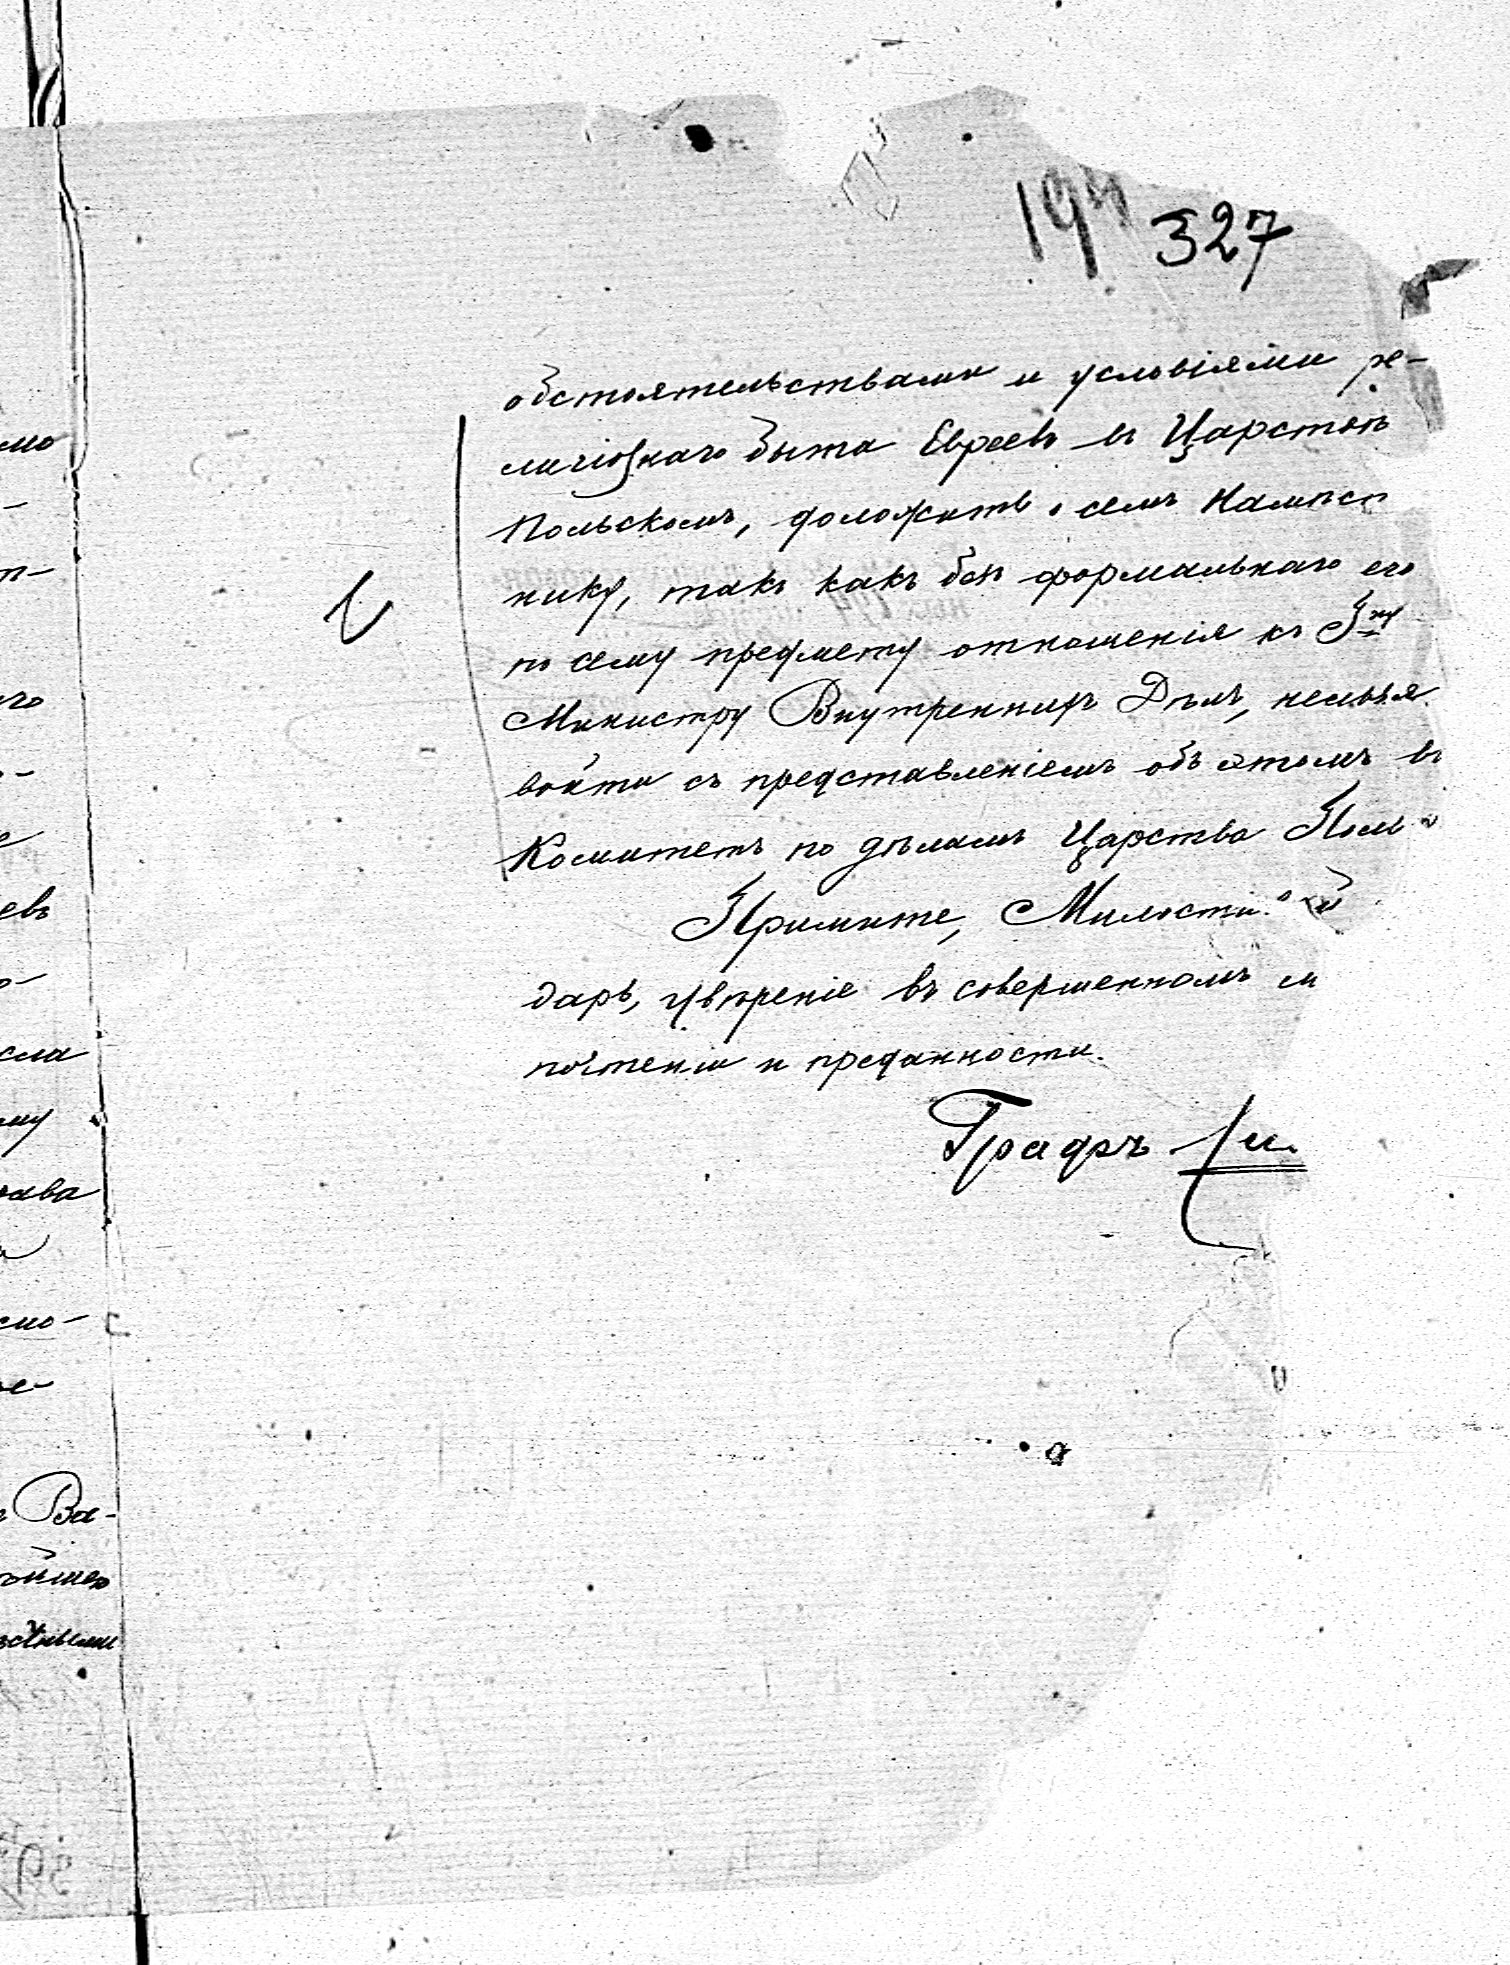 327
обстоятельствами и условіями ре-
лигіознаго быта Евреевъ въ Царствѣ
Польскомъ, доложить о семъ Намѣст
нику, такъ какъ безъ формальнаго его
по сему предмету отношенія къ Гну
Министру Внутреннихъ Дѣлъ, нельзя
войти съ представленіемъ объ этомъ въ
Комитетъ по дѣламъ Царства Поль
Примите, Милости
дарь, увѣреніе въ совершенномъ м
почтеніи и преданности.
Графъ
мо
т-
аго
евъ
сла
ому
рава
Ва-